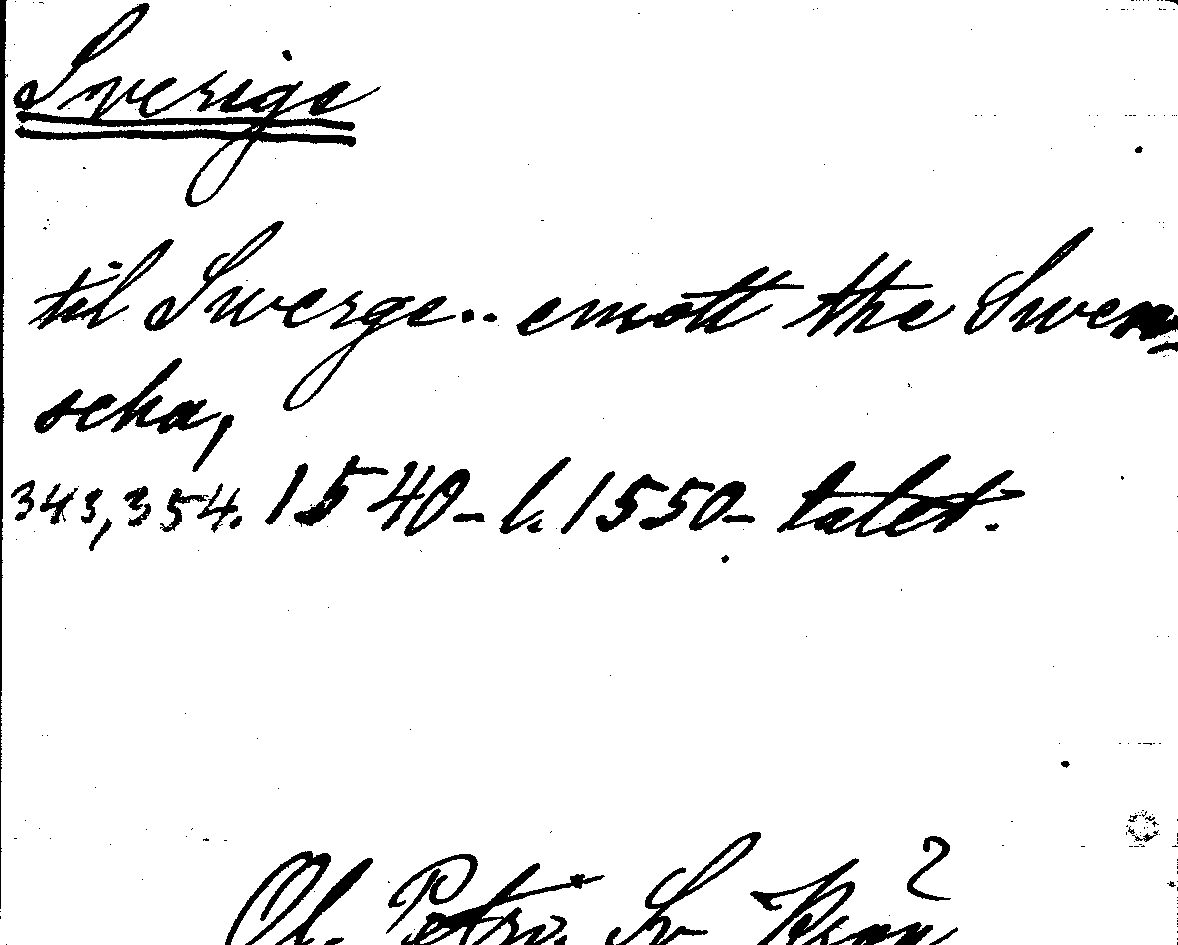 Sverige
til Swerge.. emott the Swen-
scha,
343, 354. 1540- l. 1550- talet.
2
Ol. Petri. Sv Krön